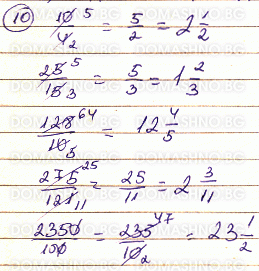 10) 10/4 5 2 = 5/2 = 2 1/2
25/15 5 3 = 5/3 = 1 2/3
128/10 64 5 = 12 4/5
275/121 25 11 = 25/11 = 2 3/11
2350/100 = 235/10 47 2 = 23 1/2
DOMASHNO.BG